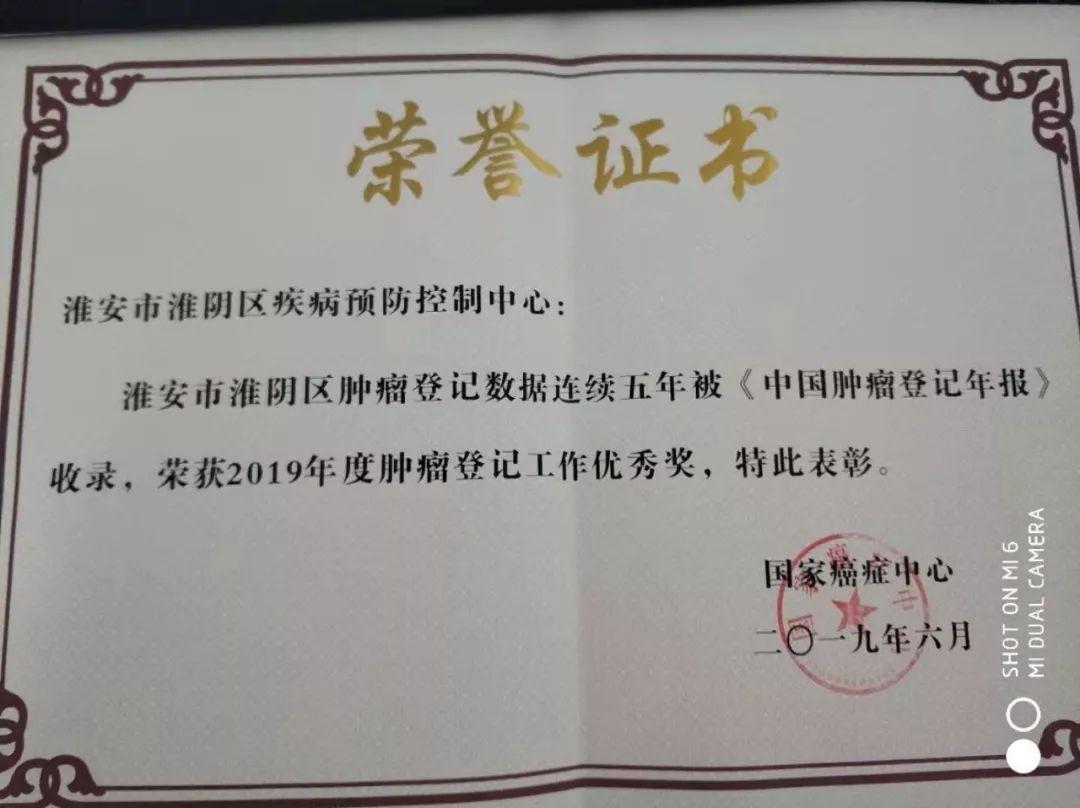 荣誉证书
淮安市淮阴区疾病预防控制中心：
淮安市淮阴区肿瘤登记数据连续五年被《中国肿瘤登记年报》
收录，荣获2019年度肿瘤登记工作优秀奖，特此表彰。
国家癌症中心
二〇一九年六月
SHOT ON MI 6
MI DUAL CAMERA